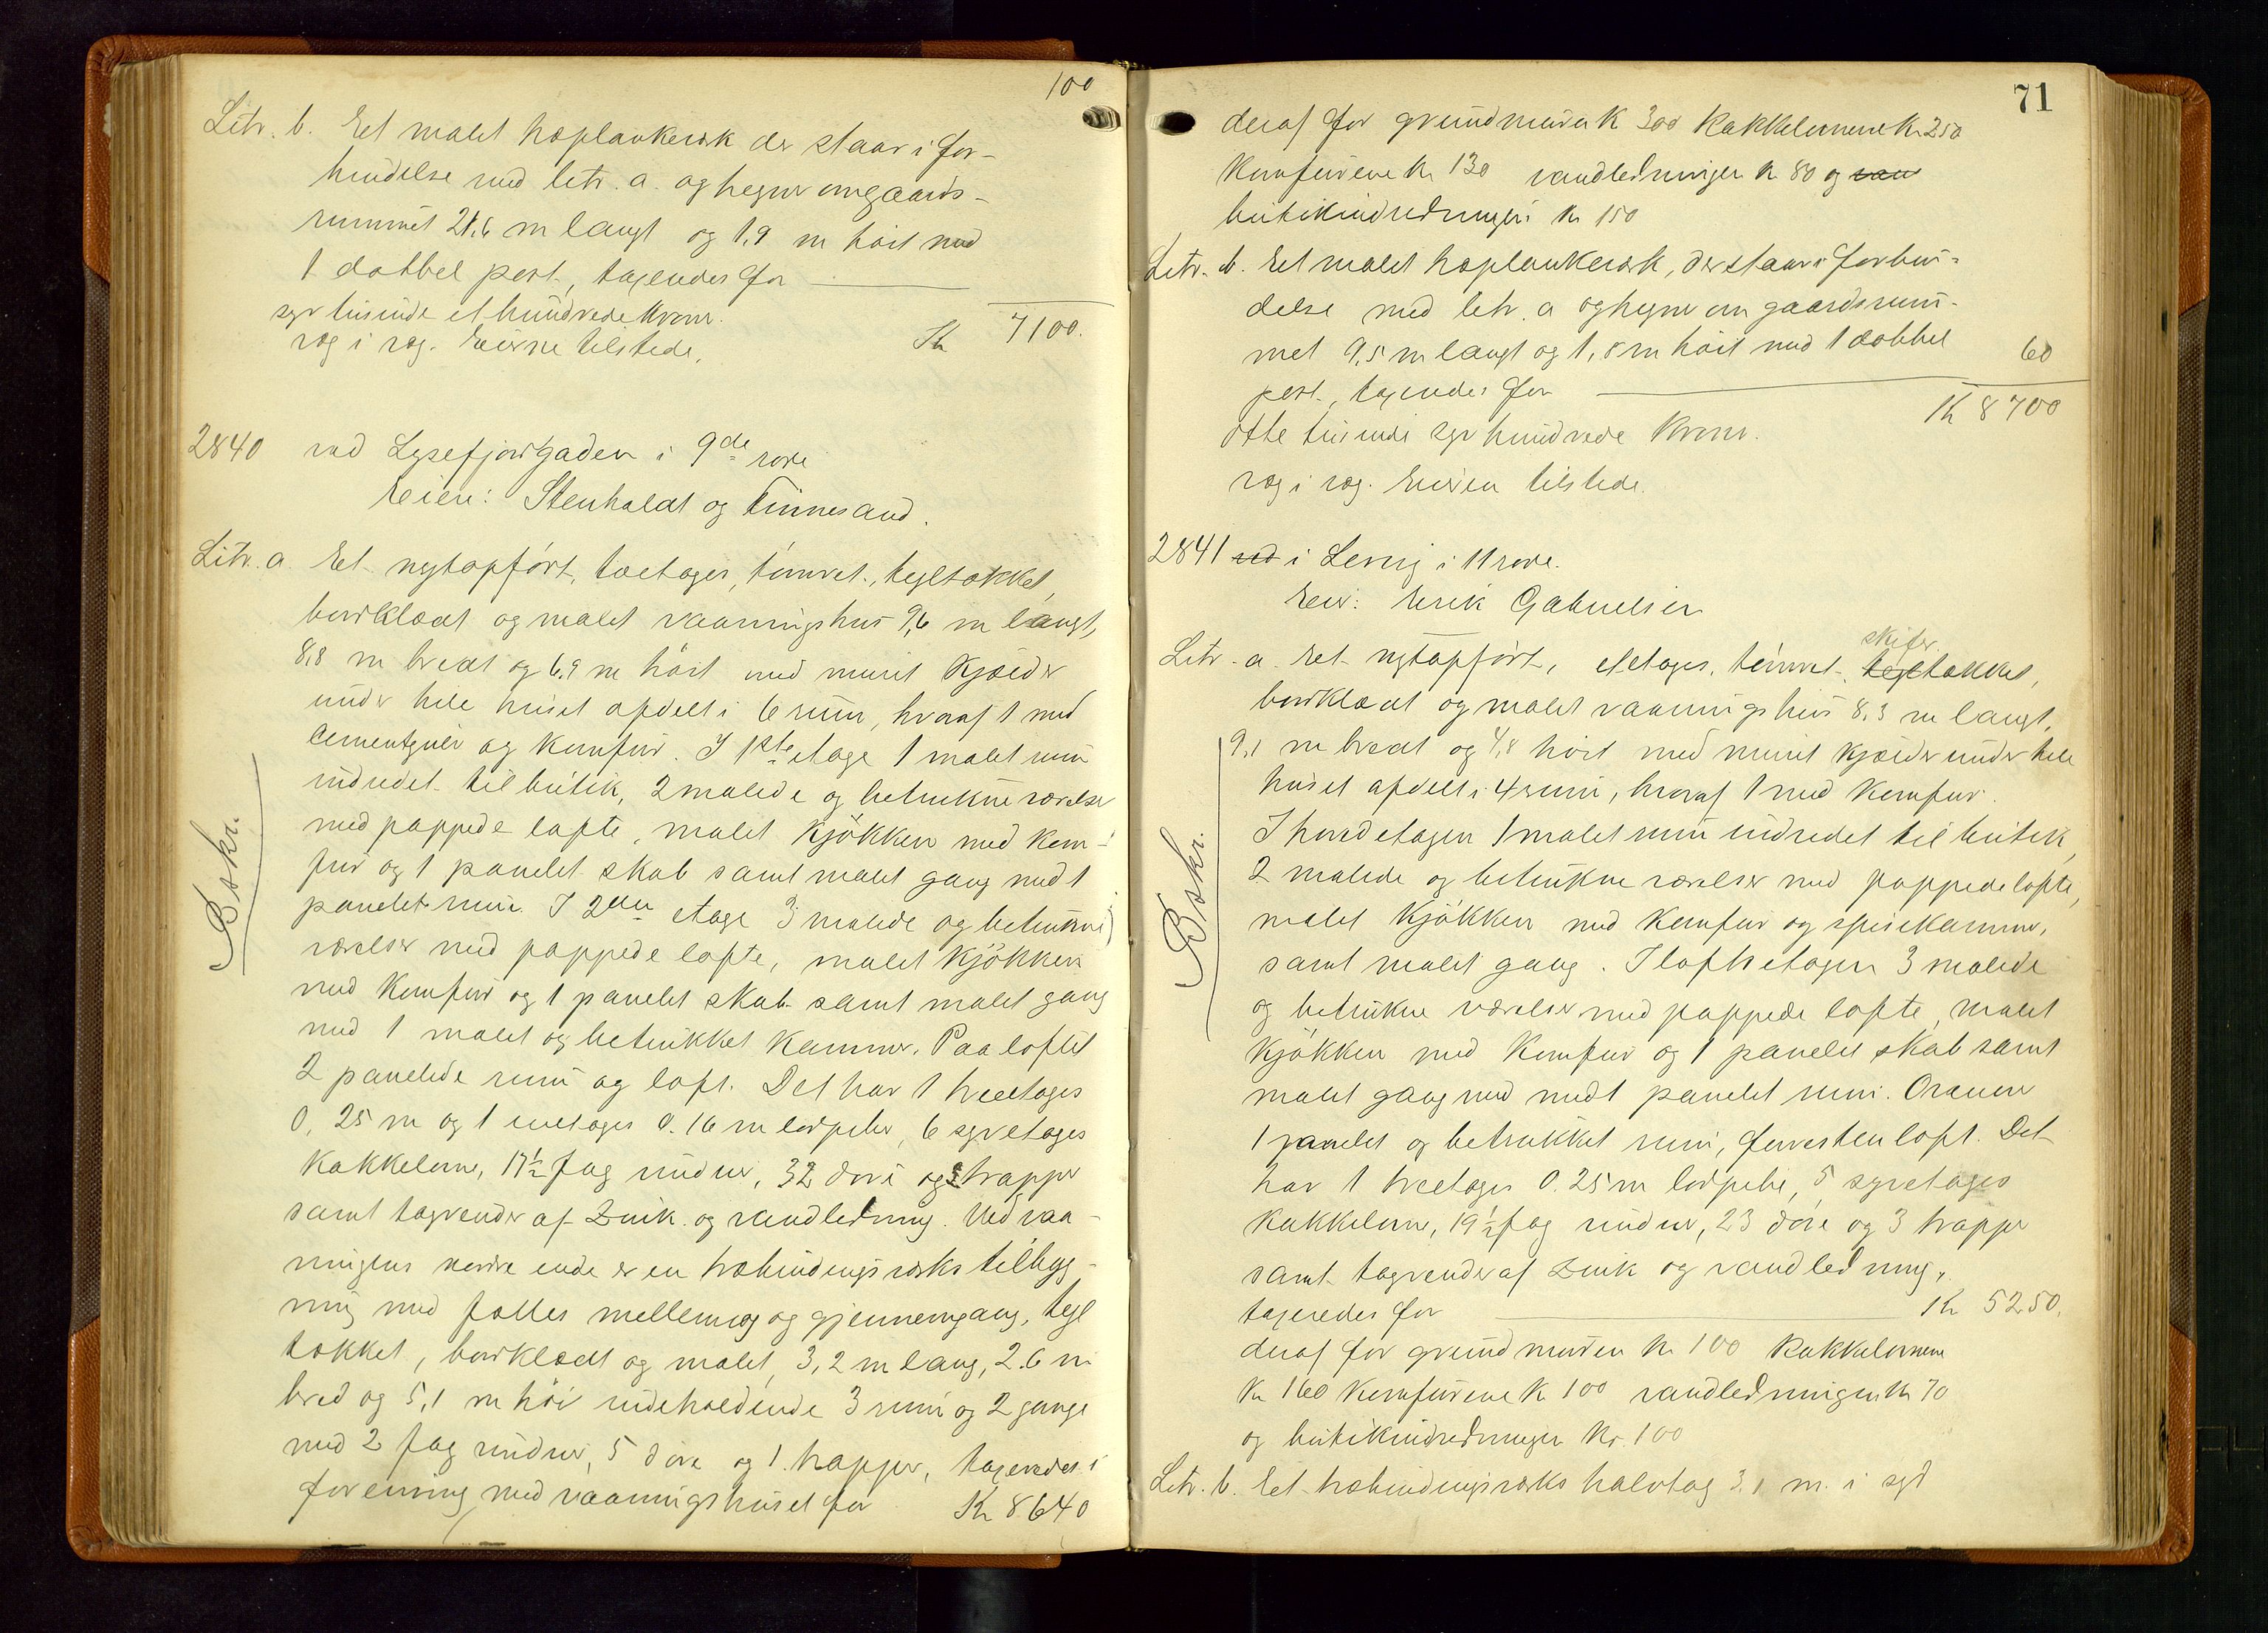 100
Litr. b. Et malet træplankeverk der staar i for-
bindelse med litr. a. og hegner om gaards-
rummet 21,6 m langt og 1,9 m høit med
1 dobbel port, taxeredes for
syv tusinde et hundrede kroner. Kr 7100.
ræg i ræg. Eierne tilstede.
2840 ved Lysefjordgaden i 9de rode
Eiere: Stenholdt og Tinnesand.
Litr. a Et nytopført, toetages, tømret, tegltækket,
bordklædt og malet vaaningshus 9,6 m langt,
8,8 m bredt og 6,9 m høit med muret kjælder
under hele huset afdelt i 6 rum, hvoraf 1 med
cementgulv og komfur. I 1ste etage 1 malet rum
indredet til butik, 2 malede og betrukne værelser
med pappede lofte, malet kjøkken med kom-
fur og 1 panelet skab samt malet gang med 1
panelet rum. I 2den etage 3 malede og betrukne
værelser med pappede lofte, malet kjøkken
med komfur og 1 panelet skab samt malet gang
med 1 malet og betrukket kammer. Paa loftet
2 panelede rum og loft. Det har 1 treetages
0,25 m og 1 enetages 0.16 m lodpibe, 6 syvetages
kakkelovne, 17½ fag vinduer, 32 døre og 3 trapper
samt tagrender af zink og vandledning. Ved vaa-
ningens nordre ende er en træbindingsværks tilbyg-
ning med fælles mellemvæg og gjennemgang, tegl
tækket, bordklædt og malet, 3,2 m lang, 2.6 m
bred og 5,1 m høi indeholdende 3 rum og 2 gange
med 2 fag vinduer, 5 døre og 1 trapper, taxeredes i
forening med vaaningshuset for Kr 8640
Bskr.
71
deraf for grundmuren K 300 Kakkelovnene Kr 250
Komfurene Kr 130 vandledningen Kr 80 og van
butikindredningen Kr 150
Litr. b. Et malet træplankeverk, der staar i forbin-
delse med litr. a og hegner om gaardsrum-
met 9,5 m langt og 1,8 m høit med 1 dobbel
port, taxeredes for 60
Kr 8700
otte tusinde syv hundrede Kroner.
ræg i ræg. Eieren tilstede.
2841 ved i Levervig i 11 rode.
Eier: Erik Gabrielsen
Litr. a. Et nytopført, etetages, tømret, tegl skifer tækket,
bordklædt og malet vaaningshus 8,3 m langt,
9,1 m bredt og 4,8 høit med muret kjælder under hele
huset afdelt i 4 rum, hvoraf 1 med komfur.
I hovedetagen 1 malet rum indredet til butik,
2 malede og betrukne værelser med pappede lofte,
malet kjøkken med komfur og spisekammer,
samt malet gang. I loftsetagen 3 malede
og betrukne værelser med pappede lofte, malet
kjøkken med komfur og 1 panelet skab samt
malet gang med med 1 panelet rum. Ovenover
1 panelet og betrukket rum, forresten loft. Det
har 1 treetages 0.25 m lodpibe, 5 syvetages
kakkelovne, 19½ fag vinduer, 23 døre og 3 trapper
samt tagrender af zink og vandledning,
taxeredes for Kr 5250.
deraf for grundmuren Kr 100 Kakkelovnene
Kr 160 Komfurene K 100 vandledningen Kr 70
og butikindredningen Kr. 100
Litr. b. Et træbindingsværks halvtag 3,1 m. i syd
Bskr.